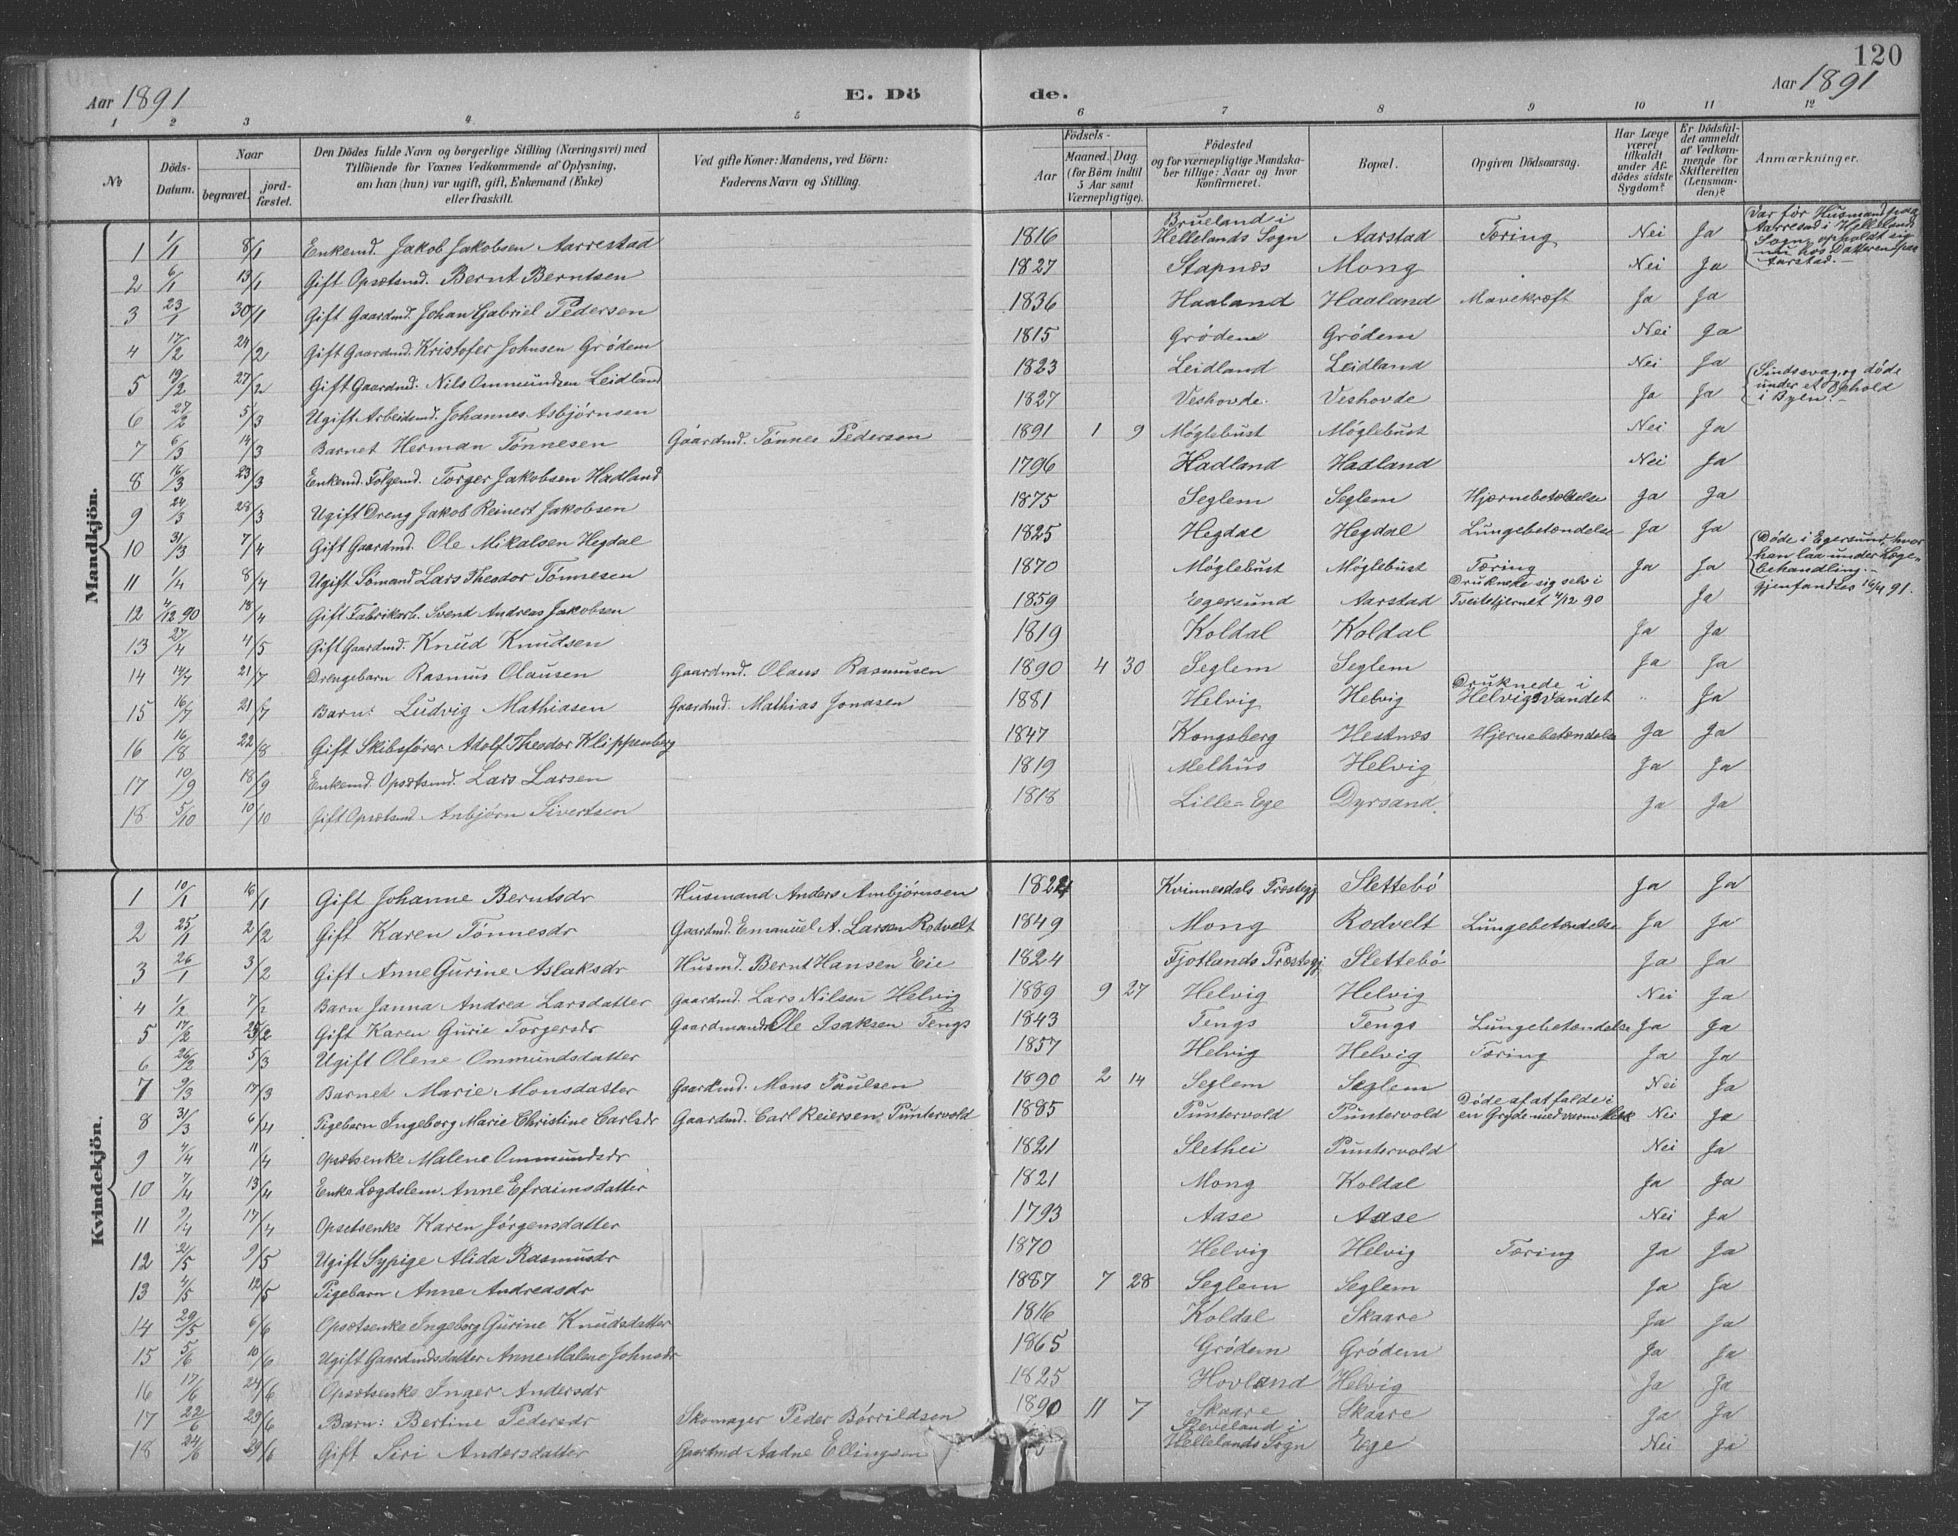 120
Aar 1891 E. Dö de. Aar 1891
1 2 3 4 5 6 7 8 9 10 11 12
№ Döds-Datum. Naar begravet. jordfæstet. Den Dödes fulde Navn og borgerlige Stilling (Næringsvei) med Tilföiende for Voxnes Vedkommende af Oplysning, om han (hun) var ugift, gift, Enkemand (Enke) eller fraskilt. Ved gifte Koner: Mandens, ved Börn: Faderens Navn og Stilling. Födsels- Aar Maaned. Dag (for Börn indtil 5 Aar samt Værnepligtige). Födested og for værnepligtige Mandskaber tillige: Naar og hvor konfirmeret. Bopæl. Opgiven Dödsaarsag. Har Læge været tilkaldt under Afdödes sidste Sygdom? Er Dödsfaldet anmeldt af Vedkommende for Skifteretten (Lensmanden)? Anmærkninger.
Mandkjön.
1 1/1 8/1 Enkemd. Jakob Jakobsen Aarrestad 1816 Brueland i Hellelands Sogn Aarstad Tæring Nei Ja Var før Husmand paa Aarrestad i Helleland Sogn, opholdt sig nu hos Datteren paa Aarstad.
2 6/1 13/1 Gift Opsætsmd. Bernt Berntsen 1827 Stapnæs Mong Nei Ja
3 23/1 30/1 Gift Gaardmd. Johan Gabriel Pedersen 1836 Haaland Haaland Mavekræft Ja Ja
4 17/2 24/2 Gift Gaardmd. Kristofer Johnsen Grødem 1815 Grødem Grödem Nei Ja
5 19/2 27/2 Gift Gaardmd. Nils Ommundsen Leidland 1823 Leidland Leidland Nei Ja
6 27/2 5/3 Ugift Arbeidsmd. Johannes Asbjørnsen 1827 Veshovde Veshovde Ja Ja Sindssvag, og døde under et Ophold i Byen.
7 6/3 14/3 Barnet Herman Tønnesen Gaardmd. Tønnes Pedersen 1891 1 9 Møglebust Møglebust Nei Ja
8 16/3 23/3 Enkemd. Folgemd. Torger Jakobsen Hadland 1796 Hadland Hadland Nei Ja
9 24/3 28/3 Ugift Dreng Jakob Reinert Jakobsen 1875 Seglem Seglem Hjernebetændelse Ja Ja
10 31/3 7/4 Gift Gaardmd. Ole Mikalsen Hegdal 1825 Hegdal Hegdal Lungebetændelse Ja Ja
11 1/4 8/4 Ugift Sömand Lars Theodor Tønnesen 1870 Møglebust Møglebust Tæring Ja Ja Døde i Egersund, hvor han laa under Lægebehandling.
12 4/12 90 18/4 Gift Fabrikarb. Svend Andreas Jakobsen 1859 Egersund Aarstad Druknede sig selv i Tveitetjernet 4/12 90 Ja Gjenfandtes 16/4 91.
13 27/4 4/5 Gift Gaardmd. Knud Knudsen 1819 Koldal Koldal Ja Ja
14 14/7 21/7 Drengebarn Rasmus Olausen Gaardmd. Olaus Rasmusen 1890 4 30 Seglem Seglem Ja Ja
15 16/7 21/7 Barn: Ludvig Mathiasen Gaardmd. Mathias Jonasen 1881 Helvig Helvig Druknede i Helvigsvandet " Ja
16 16/8 22/8 Gift Skibsfører Adolf Theodor Klippenberg 1847 Kongsberg Hestnæs Hjernebetændelse Ja Ja
17 10/9 18/9 Enkemd. Opsætsmd. Lars Larsen 1819 Melhus Helvig Ja Ja
18 5/10 10/10 Gift Opsætsmd. Anbjørn Sivertsen 1818 Lille-Ege Dyrsand Ja Ja
Kvindekjön.
1 10/1 16/1 Gift Johanne Berntsdr Husmand Anders Ambjørnsen 1824 Kvinnesdals Præstegj Slettebö Ja Ja
2 25/1 2/2 Gift Karen Tönnesdr Gaardmd. Emanuel A. Larsen Rodvelt 1849 Mong Rodvelt Lungebetændelse Ja Ja
3 26/1 3/2 Gift Anne Gurine Aslaksdr Husmd. Bernt Hansen Eie 1824 Fjotlands Præstegj Slettebö Ja Ja
4 1/2 7/2 Barn Janna Andrea Larsdatter Gaardmd. Lars Nilsen Helvig 1889 9 27 Helvig Helvig Nei Ja
5 17/2 25/2 Gift Karen Gurie Torgersdr Gaardmand Ole Isaksen Tengs 1843 Tengs Tengs Lungebetændelse Ja Ja
6 26/2 5/3 Ugift Olene Ommundsdatter 1857 Helvig Helvig Tæring Ja Ja
7 9/3 17/3 Barnet Marie Monsdatter Gaardmd. Mons Paulsen 1890 2 14 Seglem Seglem Nei Ja
8 31/3 6/4 Pigebarn Ingeborg Marie Christine Carlsdr Gaardmd. Carl Reiersen Puntervold 1885 Puntervold Puntervold Döde af at falde i en Gryde med varm Melk Nei Ja
9 4/4 11/4 Opsætsenke Malene Ommundsdr 1821 Slethei Puntervold Nei Ja
10 7/4 13/4 Enke Lægdslem. Anne Efraimsdatter 1821 Mong Koldal Ja Ja
11 9/4 17/4 Opsetsenke Karen Jørgensdatter 1793 Aase Aase Nei Ja
12 2/5 9/5 Ugift Sypige Alida Rasmusdr 1870 Helvig Helvig Tæring Ja Ja
13 4/5 12/5 Pigebarn Anne Andreasdr 1887 7 28 Seglem Seglem Ja Ja
14 29/5 6/6 Opsætsenke Ingeborg Gurine Knudsdatter 1816 Koldal Skaare Ja Ja
15 5/6 10/6 Ugift Gaardmdsdatter Anne Malene Johnsdr 1865 Grødem Grødem Ja Ja
16 17/6 24/6 Opsætsenke Inger Andersdr 1825 Hovland Helvig Ja Ja
17 22/6 29/6 Barn: Bertine Pedersdr Skomager Peder Børrildsen 1890 11 7 Skaare Skaare Ja Ja
18 24/6 29/6 Gift Siri Andersdatter Gaardmd Aadne Ellingsen Sleveland i Hellelands Sogn Ege Nei Ja